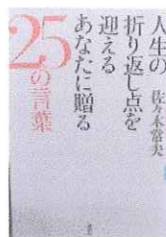 人生の
折り返し点を
迎える
あなたに贈る
25の言葉
佐々木常夫